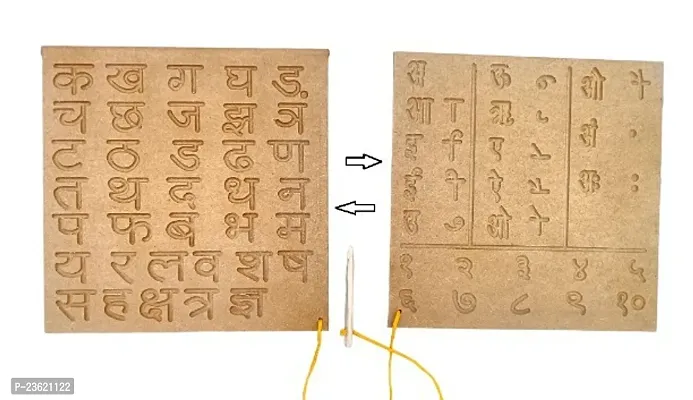 क ख ग घ ड़
च छ ज झ ञ
ट ठ ड ढ ण
त थ द ध न
प फ ब भ म
य र ल व श ष
स ह क्ष त्र ज्ञ
अ
आ ा
इ ि
ई ी
उ ु
ऊ ू
ऋ ृ
ए े
ऐ ै
ओ ो
औ ौ
अं ं
अः ः
१ २ ३ ४ ५
६ ७ ८ ९ १०
P-23621122